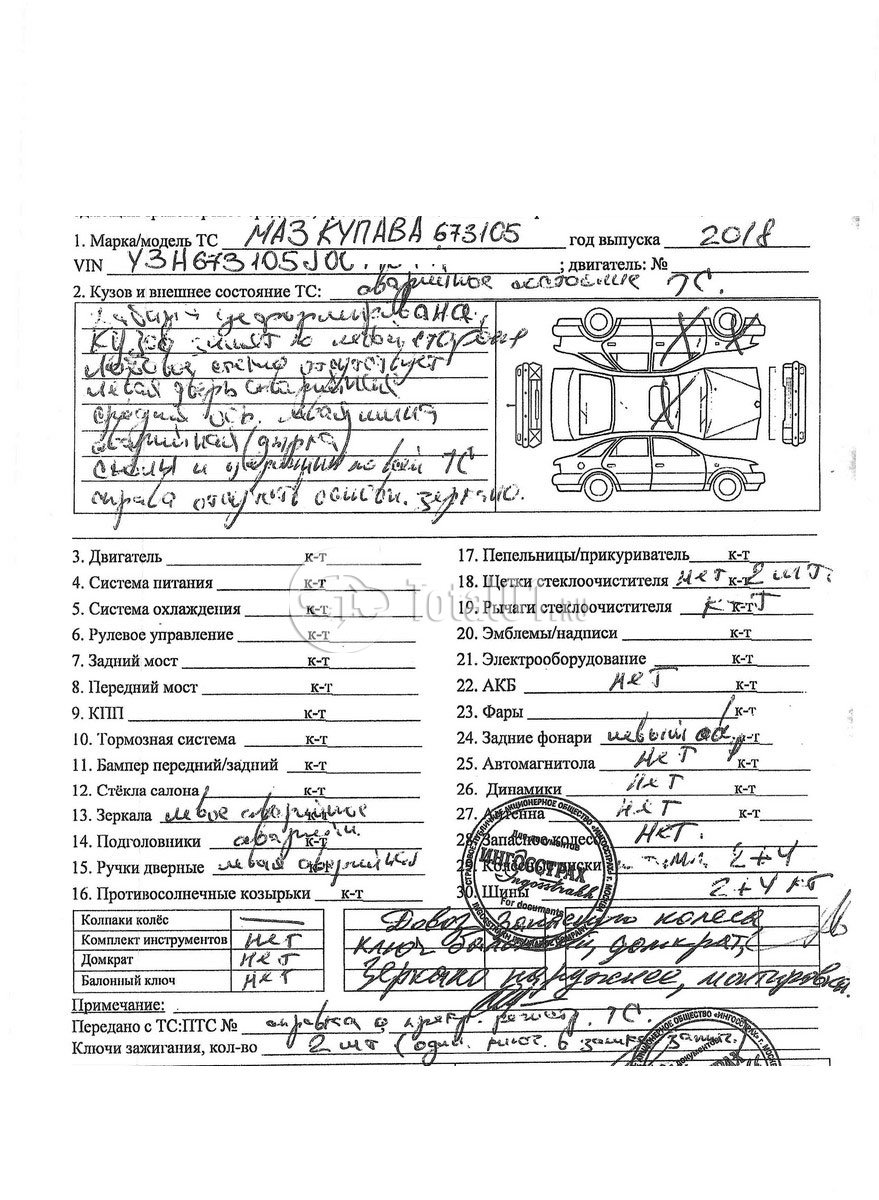 1. Марка/модель ТС МАЗ КУПАВА 673105 год выпуска 2018
VIN Y3H673105J0 ; двигатель: №
2. Кузов и внешнее состояние ТС: аварийное состояние ТС.
Кабина деформирована,
КУЗОВ по левой стороне
Лобовое стекло отсутствует
левая дверь аварийная
средняя ось левая шина
аварийная (дырка)
Сколы и царапины по всей ТС
справа отсутств зеркало.
3. Двигатель к-т
4. Система питания к-т
5. Система охлаждения к-т
6. Рулевое управление к-т
7. Задний мост к-т
8. Передний мост к-т
9. КПП к-т
10. Тормозная система к-т
11. Бампер передний/задний к-т
12. Стёкла салона к-т
13. Зеркала левое аварийное к-т
14. Подголовники аварийн. к-т
15. Ручки дверные левая аварийная к-т
16. Противосолнечные козырьки к-т
17. Пепельницы/прикуриватель к-т
18. Щетки стеклоочистителя нет к-т 2 шт.
19. Рычаги стеклоочистителя к-т
20. Эмблемы/надписи к-т
21. Электрооборудование к-т
22. АКБ нет к-т
23. Фары к-т
24. Задние фонари левый ав. к-т
25. Автомагнитола нет к-т
26. Динамики нет к-т
27. Антенна нет к-т
28. Запасное колесо нет.
29. Колесные диски 2+4
30. Шины 2+4 кт
Колпаки колёс
Комплект инструментов нет
Домкрат нет
Балонный ключ нет
Довоз запасного колеса
ключ балонный, домкрат,
Зеркало наружнее, монтировка.
Примечание:
Передано с ТС:ПТС № справка о прекр. регистр. ТС.
Ключи зажигания, кол-во 2 шт (один ключ в замке зажиг.
Total01.RU
Для документов
ИНГОССТРАХ
Ingosstrakh
For documents